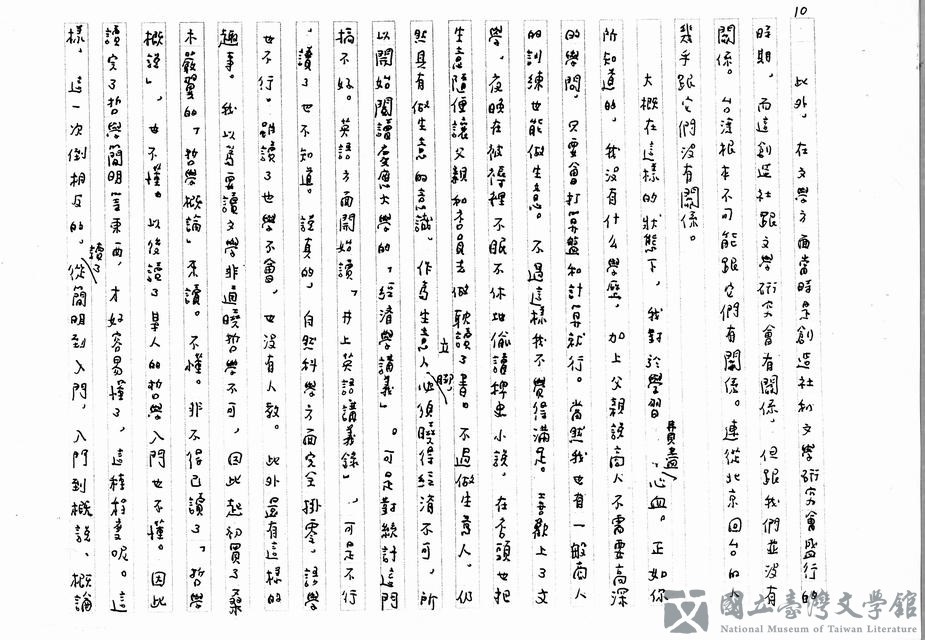 10
此外，在文學方面當時是創造社和文學研究會盛行的
時期，而這創造社跟文學研究會有關係，但跟我們並沒有
關係。台灣根本不可能跟它們有關係。連從北京回台的人
幾乎跟它們沒有關係。
大概在這樣的狀態下，我對於學習費盡心血。正如你
所知道的，我沒有什么學歷，加上父親說商人不需要高深
的學問，只要會打算盤和計算就行。當然我也有一般商人
的訓練也能做生意。不過這樣我不覺得滿足。喜歡上了文
學，夜晚在被褥裡不眠不休地偷讀稗史小說。在店頭也把
生意隨便讓父親和店員去做耽讀了書。不過做生意人，仍
然具有做生意的意識。作為生意人立腳必須曉得經濟不可，所
以開始閱讀慶應大學的「經濟學講義」。可是對統計這門
搞不好。英語方面開始讀「井上英語講義錄」，可是不行
，讀了也不知道。說真的，自然科學方面完全掛零，語學
也不行。雖讀了也學不會，也沒有人教。此外還有這樣的
趣事。我以為要讀文學非通曉哲學不可，因此起初買了桑
木嚴翼的「哲學概論」來讀。不懂。非不得已讀了「哲學
概說」，也不懂。以後讀了某人的哲學入門也不懂。因此
讀完了哲學簡明等東西，才好容易懂了，這種程度呢。這
樣，這一次倒相反的。讀了從簡明到入門，入門到概說、概論
國立臺灣文學館
National Museum of Taiwan Literature